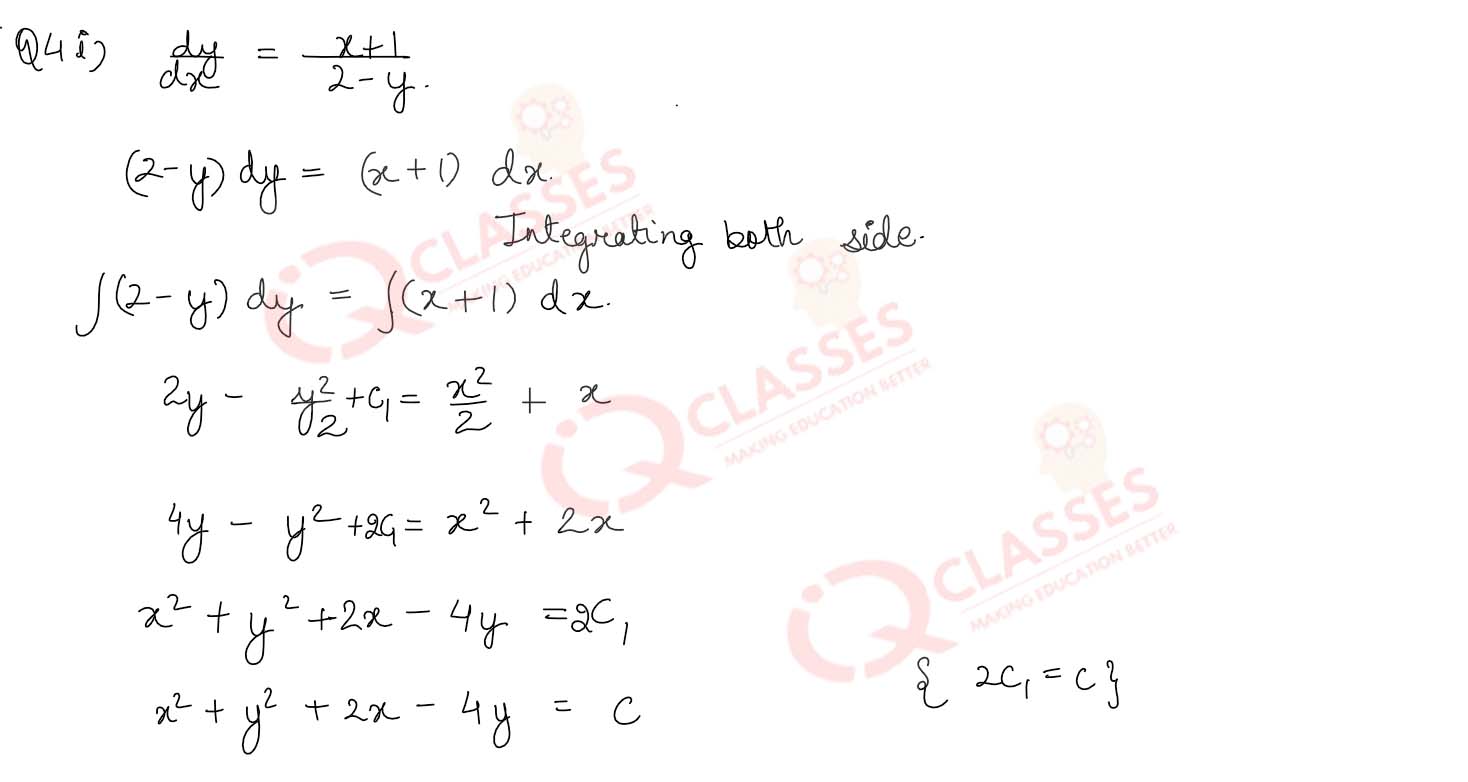 Q4 i) dy/dx = x+1/2-y.
(2-y) dy = (x+1) dx.
Integrating both side.
∫(2-y) dy = ∫(x+1) dx.
2y - y²/2 + C₁ = x²/2 + x
4y - y² + 2C₁ = x² + 2x
x² + y² + 2x - 4y = 2C₁
{ 2C₁ = C }
x² + y² + 2x - 4y = C
iQ CLASSES
MAKING EDUCATION BETTER
iQ CLASSES
MAKING EDUCATION BETTER
iQ CLASSES
MAKING EDUCATION BETTER